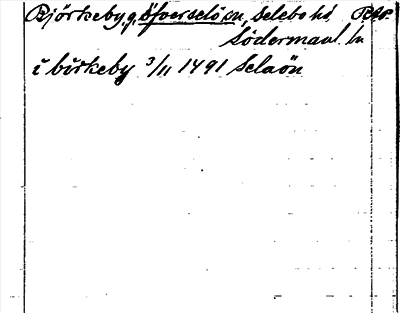 Björkeby, g, Öfverselö sn, Selebo hd,
Södermanl. ln
i birkeby 3/11 1491 Selaön